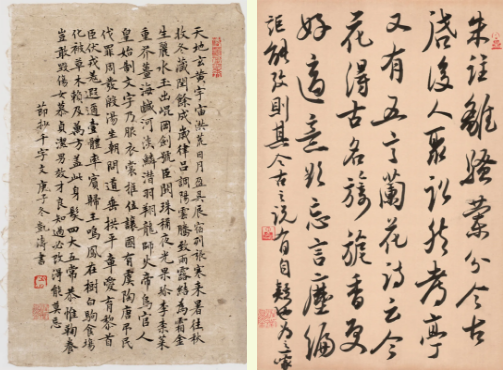 天地玄黃宇宙洪荒日月盈昃辰宿列張寒来暑往秋
收冬藏閏餘成歲律呂調陽雲騰致雨露結為霜金
生麗水玉出崑岡劍號巨闕珠稱夜光果珍李柰菜
重芥薑海鹹河淡鱗潛羽翔龍師火帝鳥官人
皇始制文字乃服衣裳推位讓國有虞陶唐弔民
伐罪周發殷湯坐朝問道垂拱平章愛育黎首
臣伏戎羌遐邇壹體率賓歸王鳴鳳在樹白駒食場
化被草木賴及萬方蓋此身髮四大五常恭惟鞠養
豈敢毀傷女慕貞潔男效才良知過必改得能莫忘
節抄千字文庚子冬凱濤書
朱註離騷蘭分今古
啓後人聚訟然考亭
又有五言蘭花詩云今
花得古名旖旎香更
好適意欲忘言塵編
詎能考則其今古之說有自疑也為之